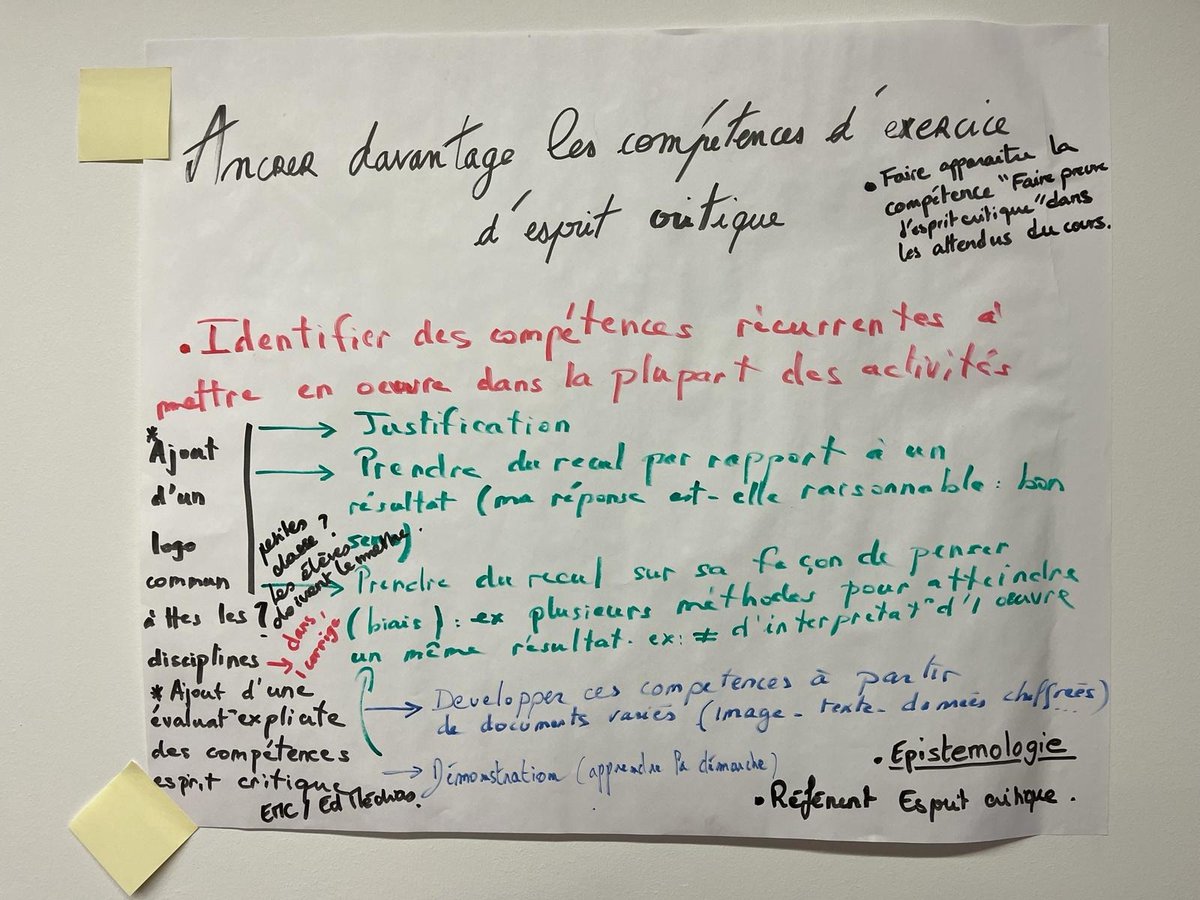 Ancrer davantage les compétences d'exercice
d'esprit critique
• Faire apparaitre la
compétence "Faire preuve
d'esprit critique" dans
les attendus du cours.
• Identifier des compétences récurrentes à
mettre en oeuvre dans la plupart des activités
→ Justification
→ Prendre du recul par rapport à un
résultat (ma réponse est-elle raisonnable : bon
sens)
→ Prendre du recul sur sa façon de penser
(biais) : ex plusieurs méthodes pour atteindre
un même résultat. ex: ≠ d'interprétat° d'1 oeuvre
* Ajout
d'un
logo
commun
à ttes les ?
disciplines → dans
l corrigé
petites
classe ?
les élèves
doivent le mettre.
* Ajout d'une
évaluat° explicite
des compétences
esprit critique
EMC / Ed Médias.
→ Developper ces competences à partir
de documents variés (image - texte - données chiffrées...)
→ Démonstration (apprendre la démarche)
• Epistemologie
• Référent Esprit critique.